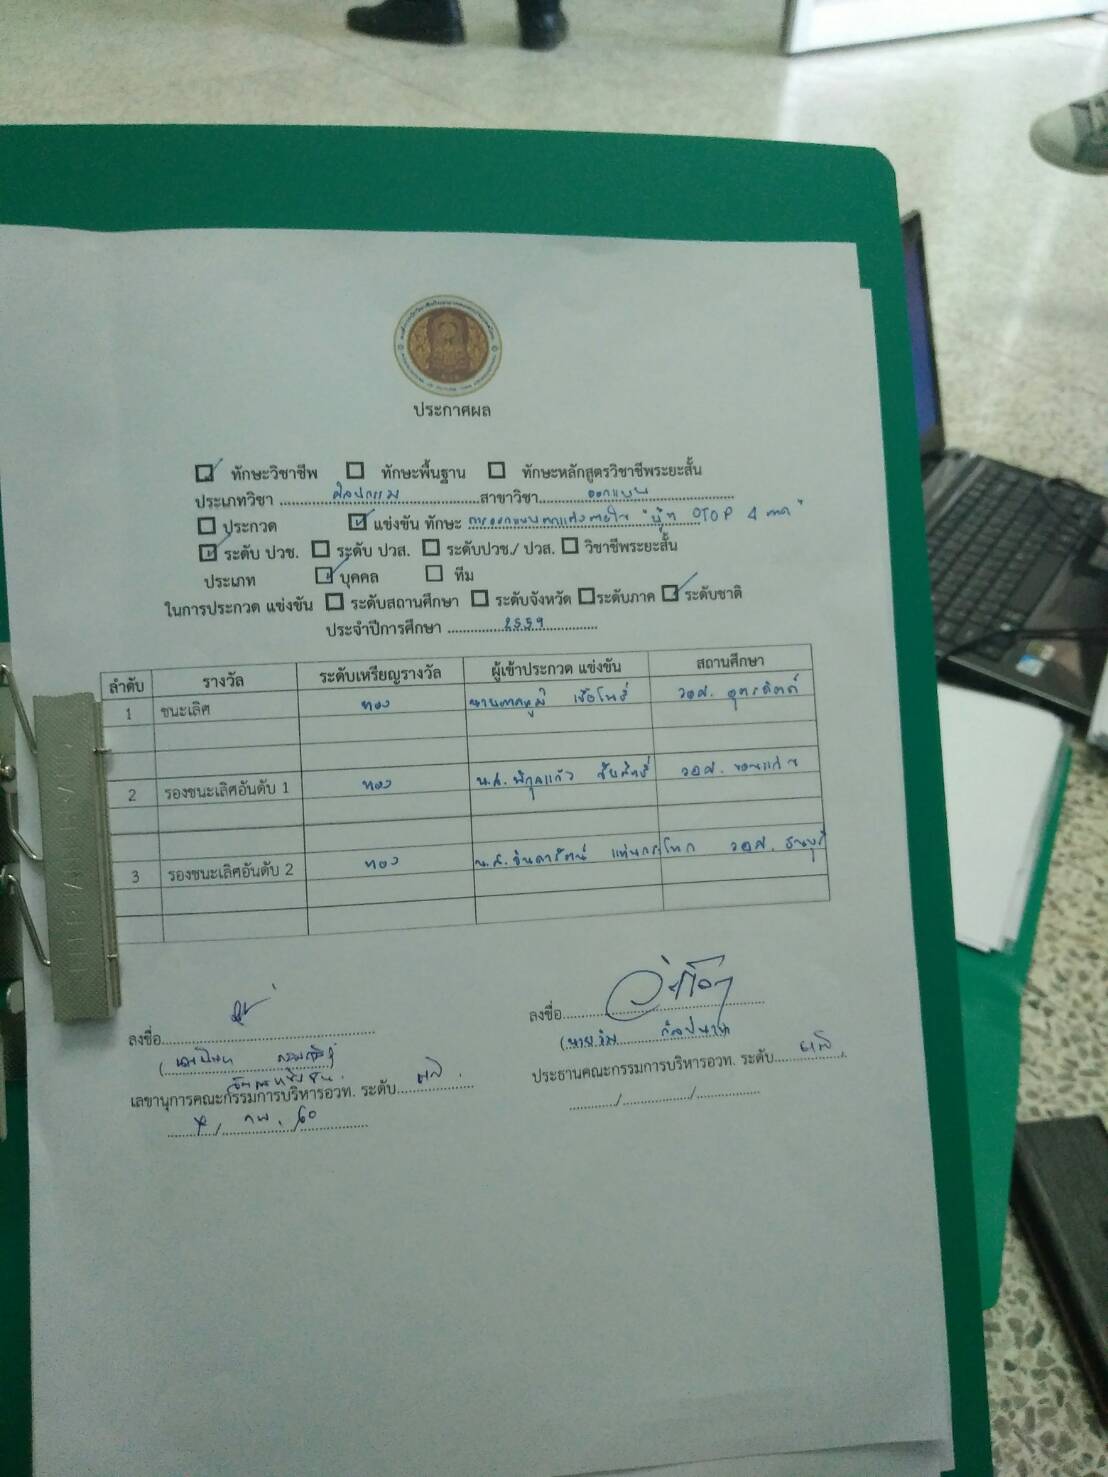 ประกาศผล
☑ ทักษะวิชาชีพ ☐ ทักษะพื้นฐาน ☐ ทักษะหลักสูตรวิชาชีพระยะสั้น
ประเภทวิชา ศิลปกรรม สาขาวิชา ออกแบบ
☐ ประกวด ☑ แข่งขัน ทักษะ การออกแบบตกแต่งภายใน "บู๊ท OTOP 4 ภาค"
☑ ระดับ ปวช. ☐ ระดับ ปวส. ☐ ระดับปวช./ ปวส. ☐ วิชาชีพระยะสั้น
ประเภท ☑ บุคคล ☐ ทีม
ในการประกวด แข่งขัน ☐ ระดับสถานศึกษา ☐ ระดับจังหวัด ☐ ระดับภาค ☑ ระดับชาติ
ประจำปีการศึกษา 2559
ลำดับ รางวัล ระดับเหรียญรางวัล ผู้เข้าประกวด แข่งขัน สถานศึกษา
1 ชนะเลิศ ทอง นายภาคภูมิ วอศ. อุตรดิตถ์
2 รองชนะเลิศอันดับ 1 ทอง น.ส. พิกุลแก้ว วอศ. ขอนแก่น
3 รองชนะเลิศอันดับ 2 ทอง น.ส. จินดารัตน์ แท่นกระโทก วอศ. ธนบุรี
ลงชื่อ
ลงชื่อ
เลขานุการคณะกรรมการบริหารอวท. ระดับ ชาติ
ประธานคณะกรรมการบริหารอวท. ระดับ ชาติ
/ กพ. / 60